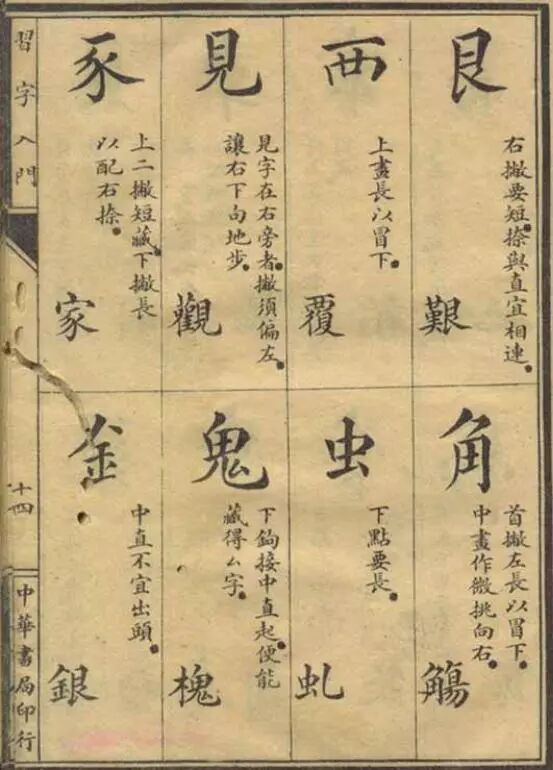 艮
右撇要短。捺與直宜相連。
艱
西
上畫長以冒下。
覆
見
見字在右旁者。撇須偏左。
讓右下勾地步。
觀
豕
上二撇短藏。下撇長
以配右捺。
家
角
首撇左長以冒下。
中畫作微挑向右。
觴
虫
下點要長。
虬
鬼
下鉤接中直起。便能
藏得厶字。
槐
釒
中直不宜出頭。
銀
習字入門
十四
中華書局印行